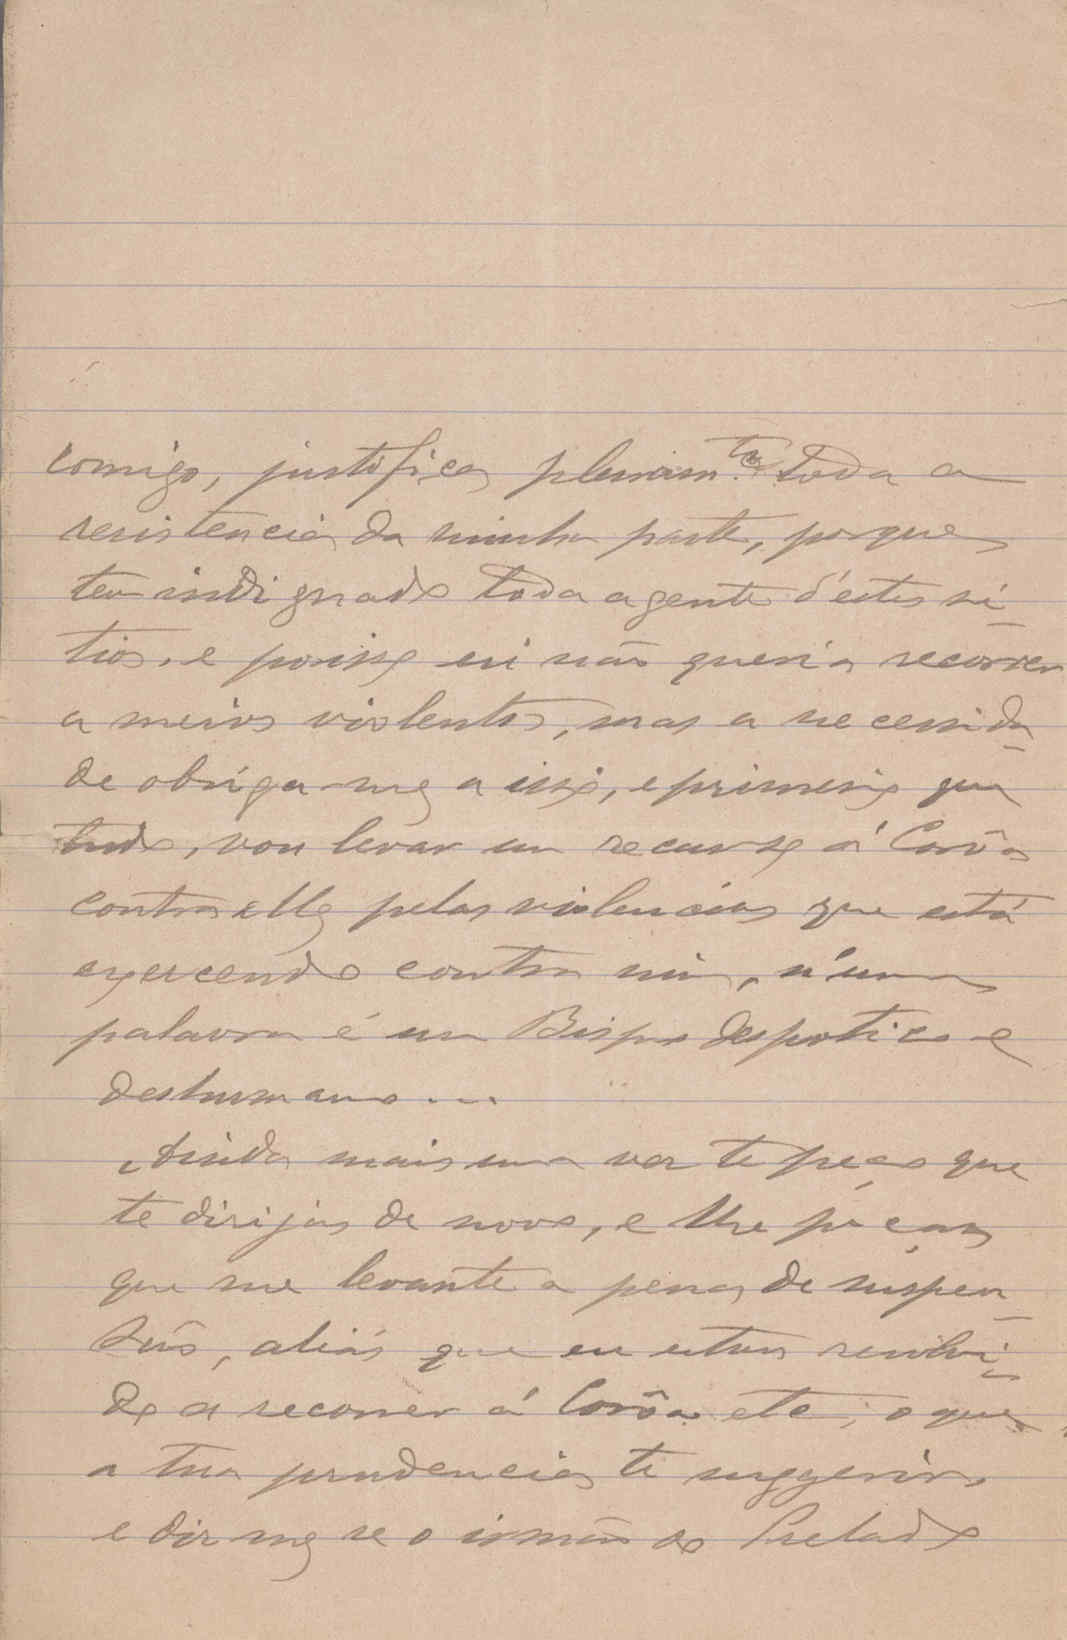 comigo, justifica plenam.te toda a
resistencia da minha parte, porque
tem indignado toda a gente d'estes si-
tios, e por isso eu não queria recorrer
a meios violentos, mas a necessida-
de obriga-me a isso, e primeiro que
tudo, vou levar um recurso á Corôa
contra elle pelas violencias que está
exercendo contra mim, n'uma
palavra é um Bispo despotico e
deshumano...
Ainda mais uma vez te peço que
te dirijas de novo, e lhe peças
que me levante a pena de suspen-
são, aliás que eu estou resolvi-
do a recorrer á Corôa etc; o que
a tua prudencia te suggerir,
e diz me se o irmão do Prelado